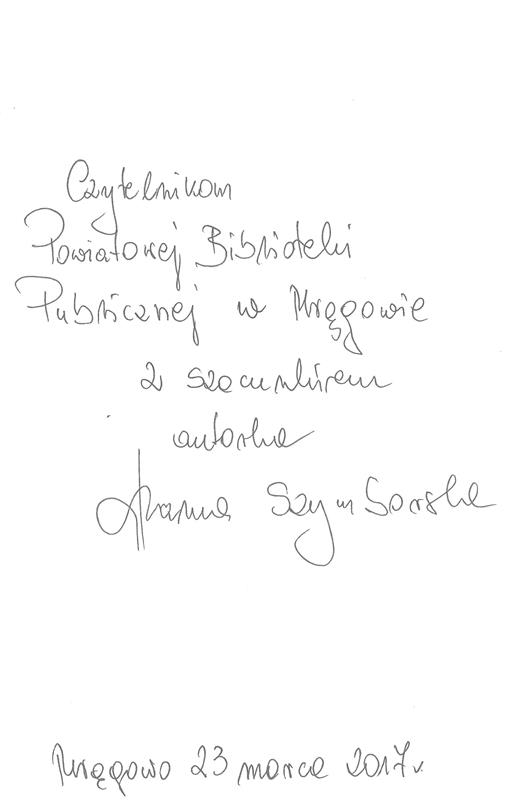 Czytelnikom
Powiatowej Biblioteki
Publicznej w Mrągowie
z szacunkiem
autorka
Hanna Szymborska
Mrągowo 23 marca 2017 r.